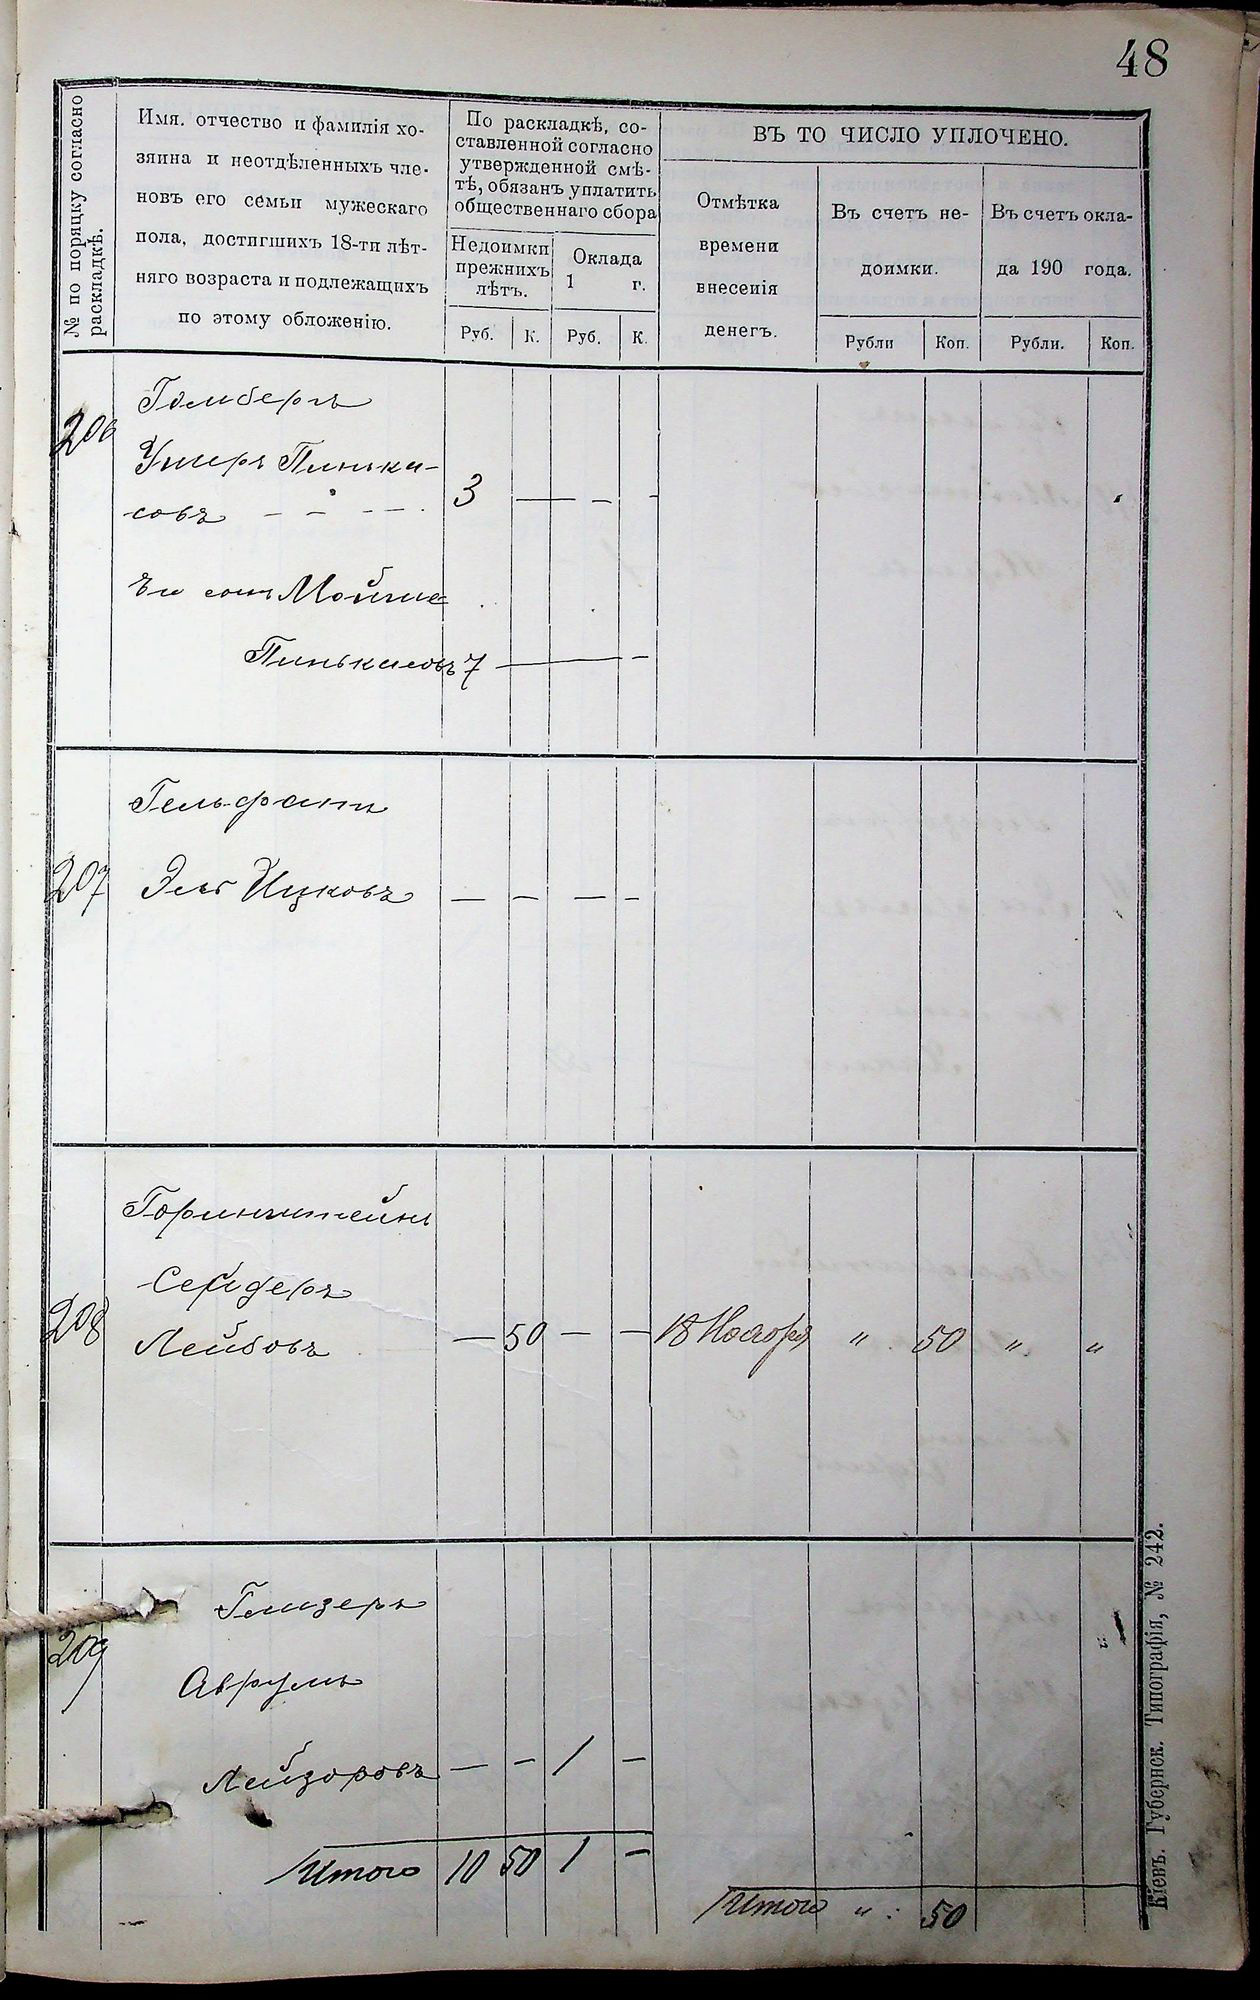 48
№ по порядку согласно
раскладкѣ.
Имя. отчество и фамилія хо-
зяина и неотдѣленныхъ чле-
новъ его семьи мужескаго
пола, достигшихъ 18-ти лѣт-
няго возраста и подлежащихъ
по этому обложенію.
По раскладкѣ, со-
ставленной согласно
утвержденной смѣ-
тѣ, обязанъ уплатить
общественнаго сбора
Недоимки
прежнихъ
лѣтъ.
Оклада
1 г.
Руб. К. Руб. К.
ВЪ ТО ЧИСЛО УПЛОЧЕНО.
Отмѣтка
времени
внесенія
денегъ.
Въ счетъ не-
доимки.
Въ счетъ окла-
да 190 года.
Рубли Коп. Рубли. Коп.
206
Гомбергъ
Ушеръ Пинька-
совъ - - - - 3 — - -
сынъ Мойше
Пинькасовъ 7 — -
207
Гельфанъ
Эль Ицковъ — - — -
208
Горинштейнъ
Сендеръ
Лейбовъ — 50 — — 18 Ноября " 50 " "
209
Глизеръ
Аврумъ
Лейзоровъ — - 1 —
Итого 10 50 1 —
Итого " : 50
Кіевъ. Губернск. Типографія, № 242.